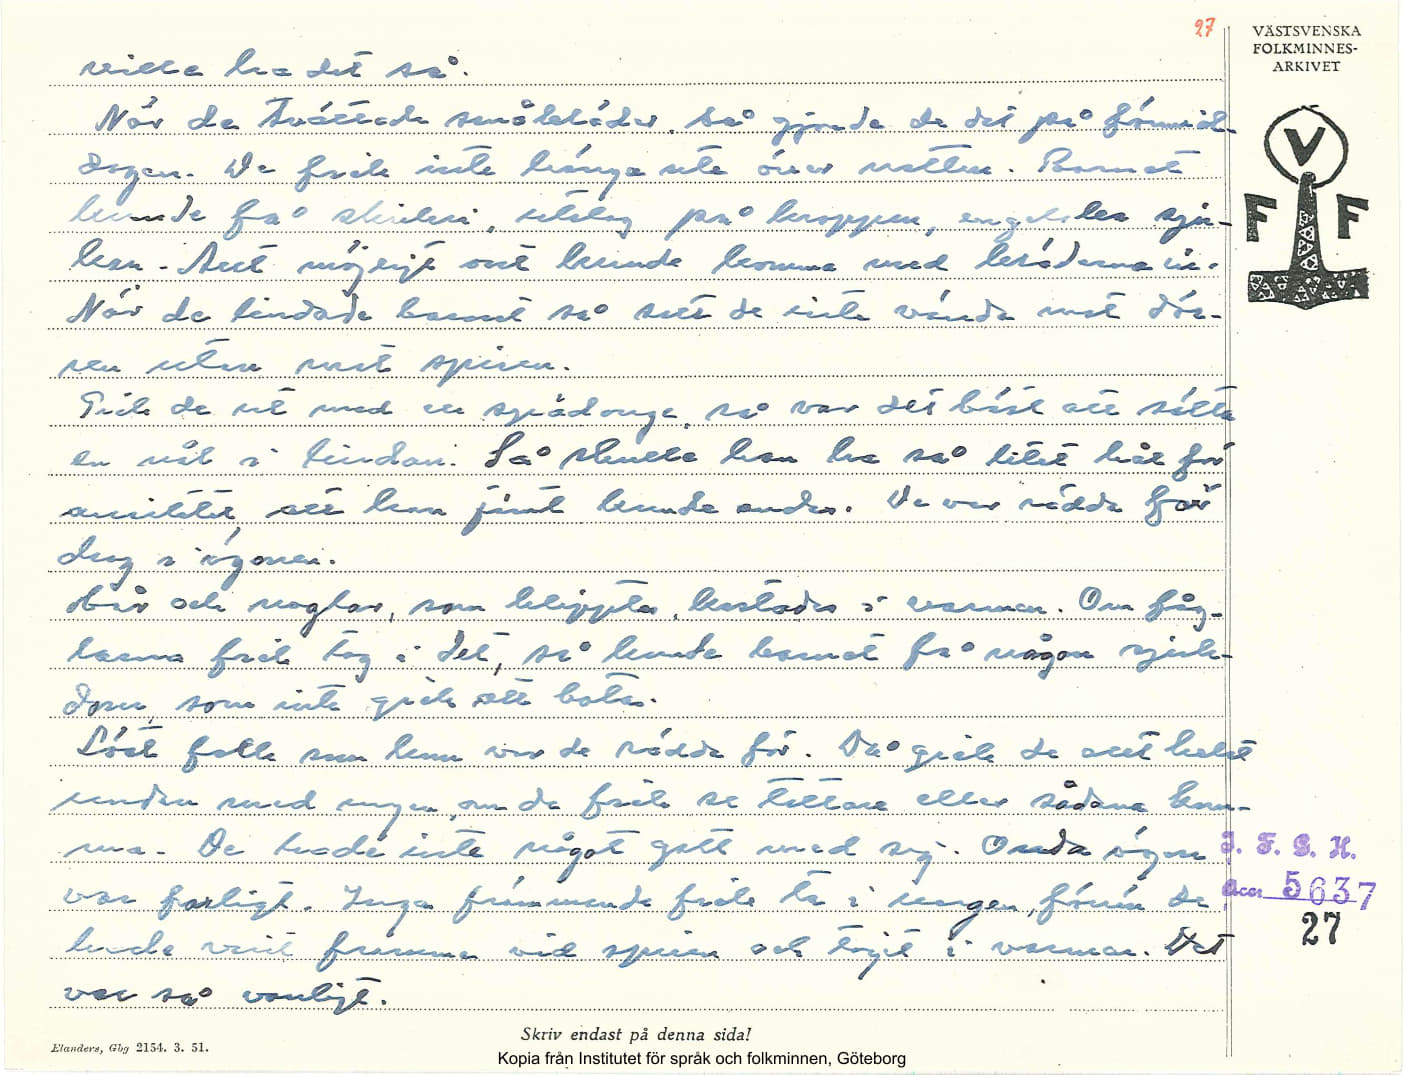 27
VÄSTSVENSKA
FOLKMINNES-
ARKIVET
V
F F
ville ha det så.
När de tvättade småkläder, så gjorde de det på förmid-
dagen. De fick inte hänga ute över natten. Barnet
kunde få skriken, utslag på kroppen, engelska sju-
kan. Allt möjligt ont kunde komma med kläderna in.
När de lindade barnet så satt de inte vända mot dör-
ren utan mot spisen.
Gick de ut med en spädunge, så var det bäst att sätta
en nål i lindan. Så skulle han ha så litet hål för
ansiktet, att han jämt kunde andas. De var rädda för
drag i ögonen.
Hår och naglar, som klipptes, kastades i varmen. Om fåg-
larna fick tag i det, så kunde barnet få någon sjuk-
dom, som inte gick att bota.
Löst folk som kom var de rädda för. Då gick de allt helst
undan med ungen, om de fick se tattare eller sådana kom-
ma. De hade inte något gott med sig. Onda ögon
var farligt. Inga främmande fick ta i ungen, förrän de
hade varit framme vid spisen och tagit i varmen. Det
var så vanligt.
I. F. G. H.
Acc. 5637
27
Skriv endast på denna sida!
Elanders, Gbg 2154. 3. 51.
Kopia från Institutet för språk och folkminnen, Göteborg